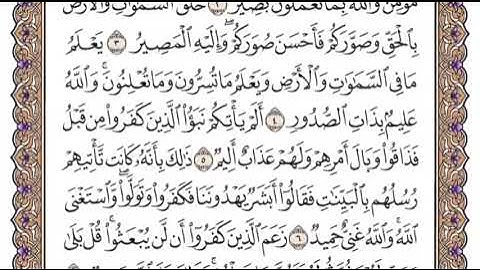 مُؤْمِنٌ وَٱللَّهُ بِمَا تَعْمَلُونَ بَصِيرٌ ٢ خَلَقَ ٱلسَّمَٰوَٰتِ وَٱلْأَرْضَ
بِٱلْحَقِّ وَصَوَّرَكُمْ فَأَحْسَنَ صُوَرَكُمْ وَإِلَيْهِ ٱلْمَصِيرُ ٣ يَعْلَمُ
مَا فِي ٱلسَّمَٰوَٰتِ وَٱلْأَرْضِ وَيَعْلَمُ مَا تُسِرُّونَ وَمَا تُعْلِنُونَ وَٱللَّهُ
عَلِيمٌۢ بِذَاتِ ٱلصُّدُورِ ٤ أَلَمْ يَأْتِكُمْ نَبَؤُا۟ ٱلَّذِينَ كَفَرُوا۟ مِن قَبْلُ
فَذَاقُوا۟ وَبَالَ أَمْرِهِمْ وَلَهُمْ عَذَابٌ أَلِيمٌ ٥ ذَٰلِكَ بِأَنَّهُۥ كَانَت تَّأْتِيهِمْ
رُسُلُهُم بِٱلْبَيِّنَٰتِ فَقَالُوٓا۟ أَبَشَرٌ يَهْدُونَنَا فَكَفَرُوا۟ وَتَوَلَّوا۟ وَّٱسْتَغْنَى
ٱللَّهُ وَٱللَّهُ غَنِيٌّ حَمِيدٌ ٦ زَعَمَ ٱلَّذِينَ كَفَرُوٓا۟ أَن لَّن يُبْعَثُوا۟ قُلْ بَلَىٰ